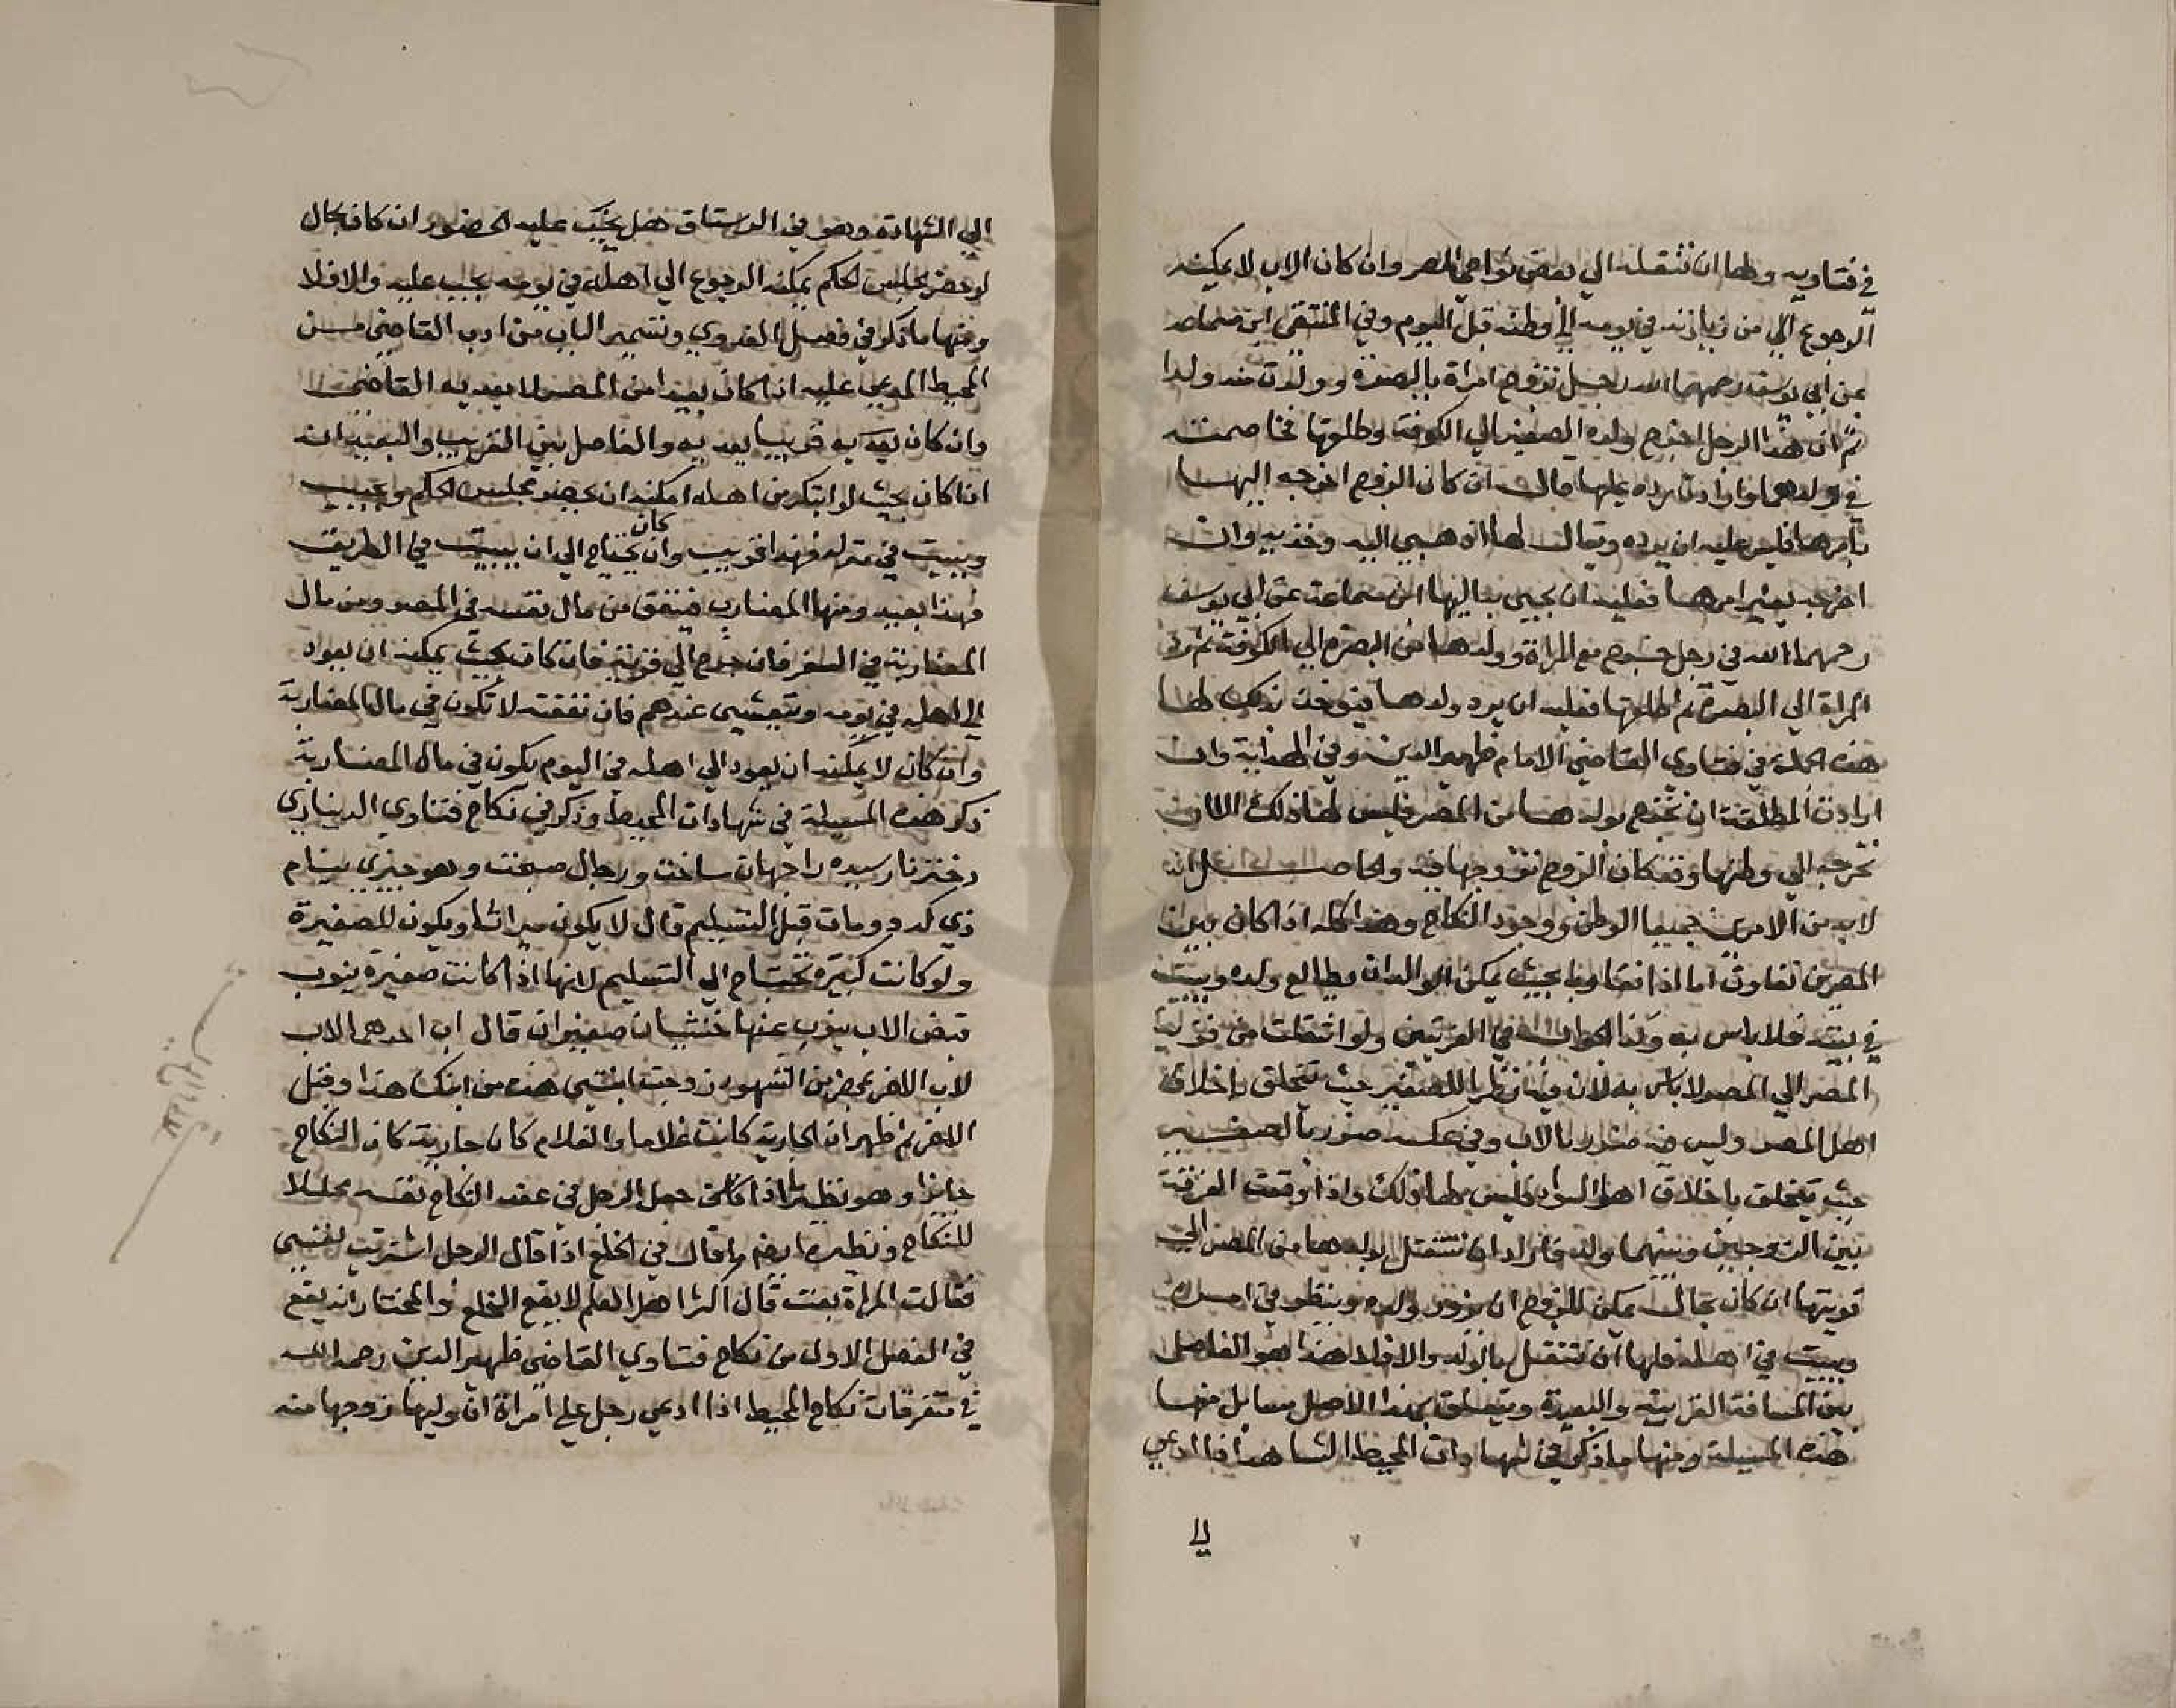 في فتاويه ولها ان تنقله الي بعض نواحي المصر وان كان الاب لا يمكنه
الرجوع الي من زيارته في يومه الي وطنه قبل اليوم وفي المنتقي ابن سماعه
عن ابي يوسف رحمهما الله رجل تزوج امراة بالبصرة وولدت منه ولدا
ثم ان هذا الرجل اخرج ولده الصغير الي الكوفة وطلقها فخاصمته
في ولدهما وارادت رده عليها قال ان كان الزوج اخرجه اليها
بامرها فليس عليه ان يرده ويقال لها اذهبي اليه وخذيه وان
اخرجه بغير امرها فعليه ان يجيي به اليها ابن سماعة عن ابي يوسف
رحمهما الله في رجل خرج مع المراة وولدها من البصرة الي الكوفة ثم رد
المراة الي البصرة ثم طلقها فعليه ان يرد ولدها فيوخذ بذلك لها
هذه الجملة في فتاوي القاضي الامام ظهير الدين وفي الهداية وان
ارادت المطلقة ان تخرج بولدها من المصر فليس لها ذلك الا ان
تخرجه الي وطنها وقد كان الزوج تزوجها فيه والحاصل انه
لابد من الامرين جميعا الوطن ووجود النكاح وهذا كله اذا كان بين
المصرين تفاوت اما اذا تقاربا بحيث يمكن الوالد ان يطالع ولده ويبيت
في بيته فلا باس به وكذا الجواب في القريتين ولو انتقلت من قرية
المصر الي المصر لا باس به لان فيه نظرا للصغير حيث يتخلق باخلاق
اهل المصر وليس فيه ضرر بالاب وفي عكسه ضرر بالصغير
حيث يتخلق باخلاق اهل السواد فليس لها ذلك واذا وقعت الفرقة
بين الزوجين وبينهما ولد فاراد ان تنتقل بولدها من المصر الي
قريتها ان كان بحال يمكن للزوج ان يزور ولده وينظر في امره
ويبيت في اهله فلها ان تنتقل بالولد والا فلا هذا هو الفاصل
بين المسافة القريبة والبعيدة ويتعلق بهذا الاصل مسايل منها
هذه المسيلة ومنها ما ذكر في شهادات المحيط الشاهد اذا ادعي
الي
الي الشهادة وهو في الرستاق هل يجب عليه الحضور ان كان بحال
لو حضر مجلس الحكم يمكنه الرجوع الي اهله في يومه يجب عليه والا فلا
ومنها ما ذكر في فصل العدوي وتسمير الباب من ادب القاضي من
المحيط المدعي عليه اذا كان بعيدا من المصر لا يعديه القاضي
وان كان يعديه قريبا يعديه والفاصل بين القريب والبعيد انه
اذا كان بحيث لو ابتكر من اهله امكنه ان يحضر مجلس الحكم ويجيب
ويبيت في منزله فهذا قريب وان كان يحتاج الي ان يبيت في الطريق
فهذا بعيد ومنها المضارب فينفق من مال نفسه في المصر ومن مال
المضاربة في السفر فان خرج الي قرية فان كان بحيث يمكنه ان يعود
الي اهله في يومه ويتعشي عندهم فان نفقته لا تكون في مال المضاربة
وان كان لا يمكنه ان يعود الي اهله في اليوم يكون في مال المضاربة
ذكر هذه المسيلة في شهادات المحيط وذكر في نكاح فتاوي الديناري
دختر نارسيده را جهان ساخت ورجال صحت وهو جيزي بنام
وي كرد ومات قبل التسليم قال لا يكون ميراثا ويكون للصغيرة
ولو كانت كبيرة تحتاج الي التسليم لانها اذا كانت صغيرة ينوب
قبض الاب ينوب عنها خنثيان صغيران قال اب احدهما لاب
لاب الاخر بمحضر من الشهود زوجت ابنتي هذه من ابنك هذا وقبل
الاخر ثم ظهر ان الجارية كانت غلاما والغلام كان جارية كان النكاح
جايزا وهو نظير ما اذا كان جعل الرجل في عقد النكاح نفسه محللا
للنكاح ونظيره ايضا ما قال في الخلع اذا قال الرجل اشتريت نفسي
فقالت المراة بعت قال اكثر اهل العلم لا يقع الخلع والمختار انه يقع
في الفصل الاول من نكاح فتاوي القاضي ظهير الدين رحمه الله
في متفرقات نكاح المحيط اذا ادعي رجل علي امراة ان وليها زوجها منه